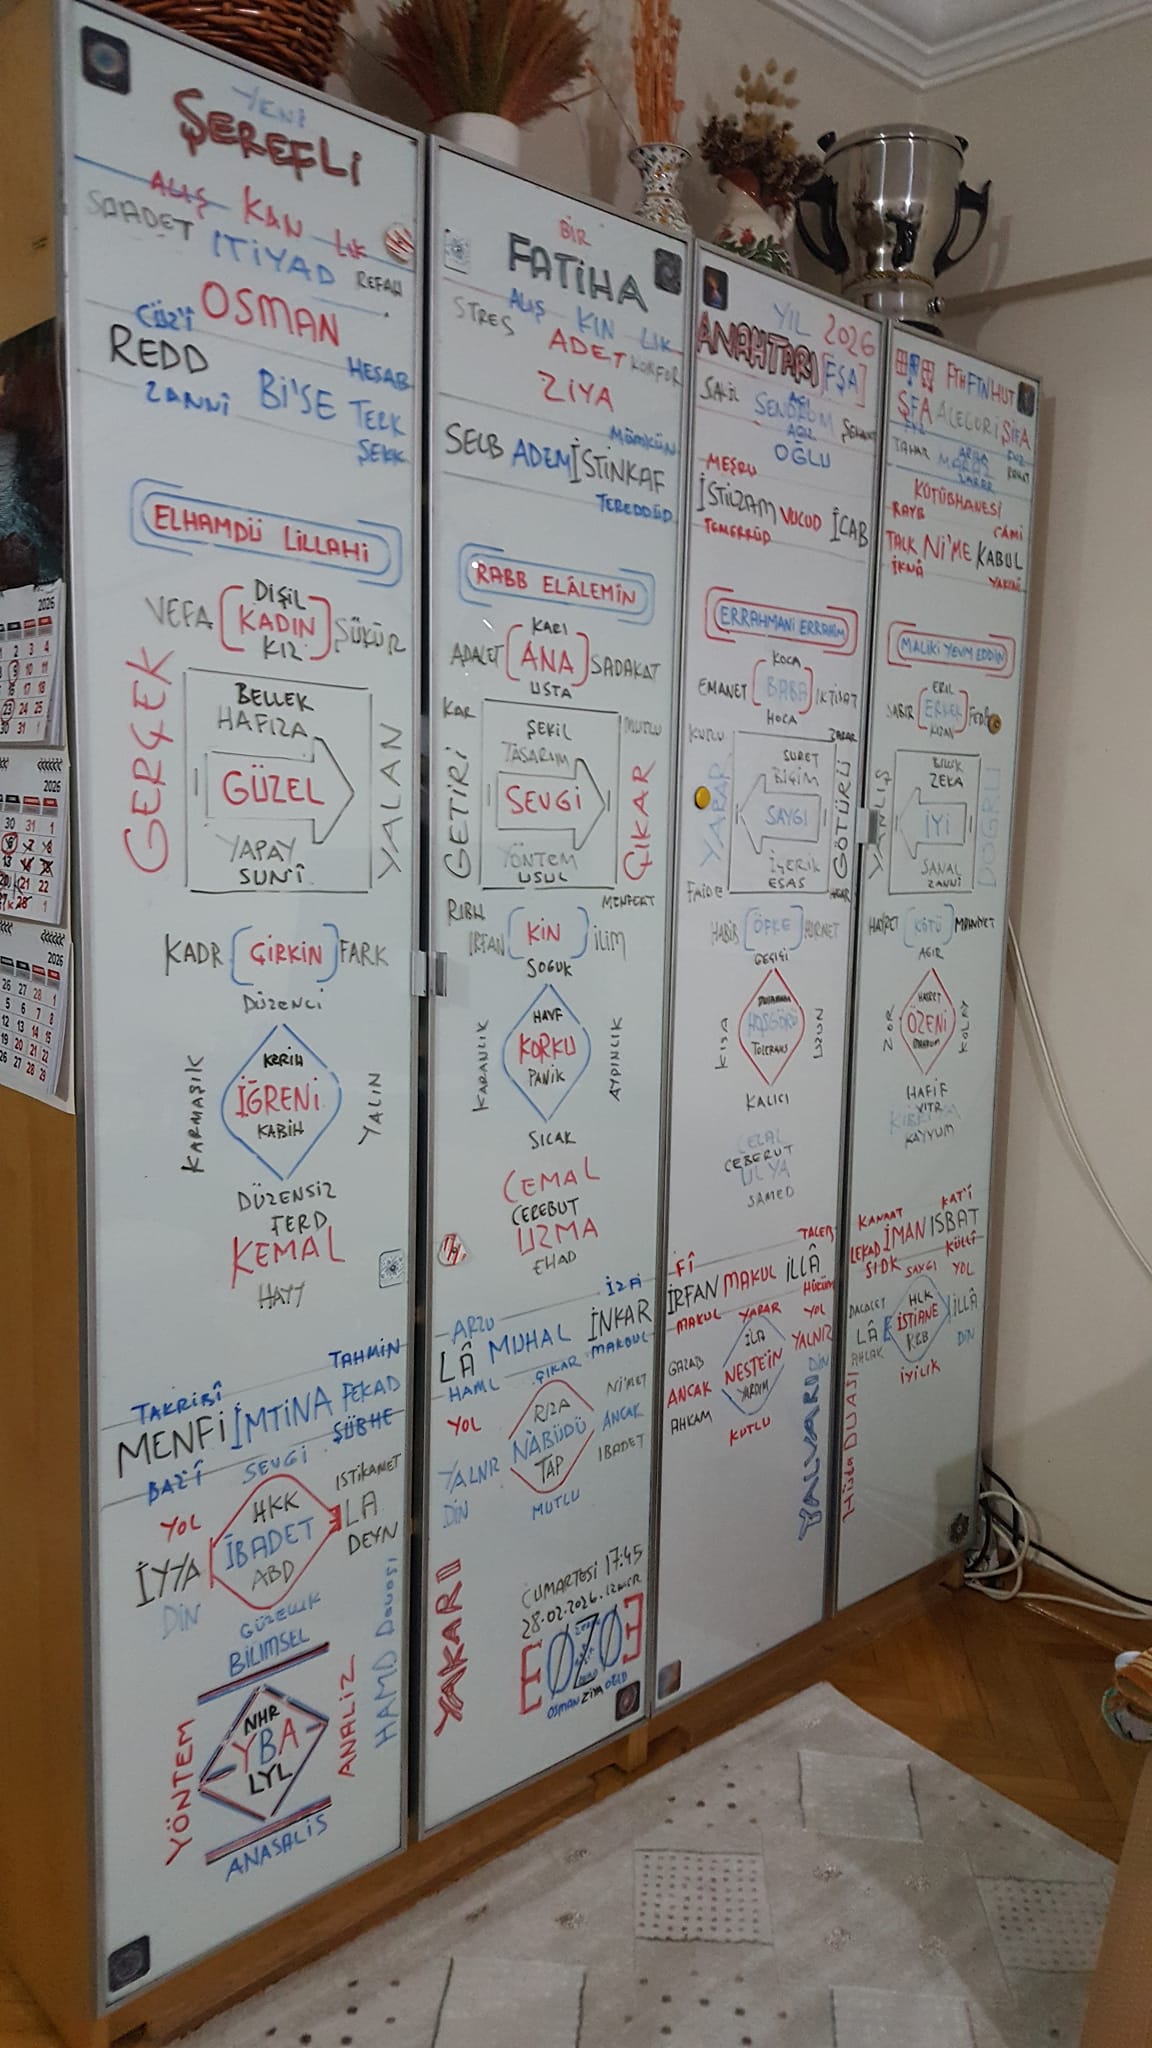 YENİ
ŞEREFLİ
ALIŞ KAN LIK
SAADET İTİYAD REFAH
OSMAN
CÜZ'İ
REDD HESAB
ZANNİ Bİ'SE TERK
ŞEKK
ELHAMDÜ LİLLAHİ
DİŞİL
VEFA [KADIN] ŞÜKÜR
KIZ
GERÇEK
BELLEK
HAFIZA
GÜZEL
YAPAY
SUNİ
YALAN
KADR [ÇİRKİN] FARK
DÜZENCİ
KARMAŞIK
KERİH
İĞRENİ
KABİH
YALIN
DÜZENSİZ
FERD
KEMAL
HAYY
TAHMİN
TAKRİBÎ
MENFİ İMTİNA FEKAD
BAZ'Î SEVGİ ŞÜBHE
YOL HKK İSTİKAMET
İYYA İBADET LA
DİN ABD DEYN
GÜZELLİK
BİLİMSEL
HAMD Davası
YÖNTEM
NHR
YBA
LYL
ANALİZ
ANASALİS
BİR
FATİHA
ALIŞ KIN LIK
STRES ADET KONFOR
ZİYA
MÜMKÜN
SELB ADEM İSTİNKAF
TEREDDÜD
RABB ELÂLEMİN
KARI
ADALET [ANA] SADAKAT
USTA
KAR MUTLU
GETİRİ
ŞEKİL
TASARIM
SEVGİ
YÖNTEM
USUL
ÇIKAR
RIBH MENFEAT
İRFAN [KİN] İLİM
SOĞUK
KARANLIK
HAVF
KORKU
PANİK
AYDINLIK
SICAK
CEMAL
CEREBUT
UZMA
EHAD
ARZU İZFİ
LÂ MUHAL İNKAR
HAML ÇIKAR MAKBUL
YOL RIZA NİMET
YALNIZ NABÜDÜ ANCAK
DİN TAP İBADET
MUTLU
YAKARI
CUMARTESİ 17:45
28.02.2026.İZMİR
EOZOE
OSMAN ZİYA OĞLU
YIL 2026
ANAHTARI [FŞA]
SAHİL SENDROM
OĞLU
MEŞRU
İSTİLZAM VUCUD İCAB
TEMERRÜD
ERRAHMANİ ERRAHİM
KOCA
EMANET [BABA] İKTİSAT
HOCA
KUTLU ZARAR
YARAR
SURET
BİÇİM
SAYGI
İÇERİK
ESAS
GÖTÜRÜ
FAİDE
HABİR [ÖFKE] HÜRMET
GEÇİCİ
KISA
HOŞGÖRÜ
TOLERANS
UZUN
KALICI
CELAL
CEBERUT
ULYA
SAMED
FÎ TALEB
İRFAN MAKUL İLLÂ
MAKUL YARAR HÜKÜM
GAZAB İLA YOL
ANCAK NESTEİN YALNIZ
AHKAM YARDIM DİN
KUTLU
YALVARI
FTHFTNHUT
ŞFA ACEGURİ ŞİFA
KÜTÜBHANESİ
RAYB CAMİ
TALK Nİ'ME KABUL
İKNÂ YAKİNİ
MALİKİ YEVM EDDİN
ERİL
SABIR [ERKEK]
YANLIŞ
BİLİK
ZEKA
İYİ
SANAL
ZANNİ
DOĞRU
HAYRET [KÖTÜ]
AĞIR
ZOR
ÖZENİ
KOLAY
HAFİF
VITR
KAYYUM
KANAAT KAT'İ
LEKAD İMAN İSBAT
SIDK SAYGI KÜLLÎ
DALALET HLK YOL
LÂ İSTİANE İLLÂ
AHLAK RBB DİN
İYİLİK
Hüda DUASI
2026
2026
2026